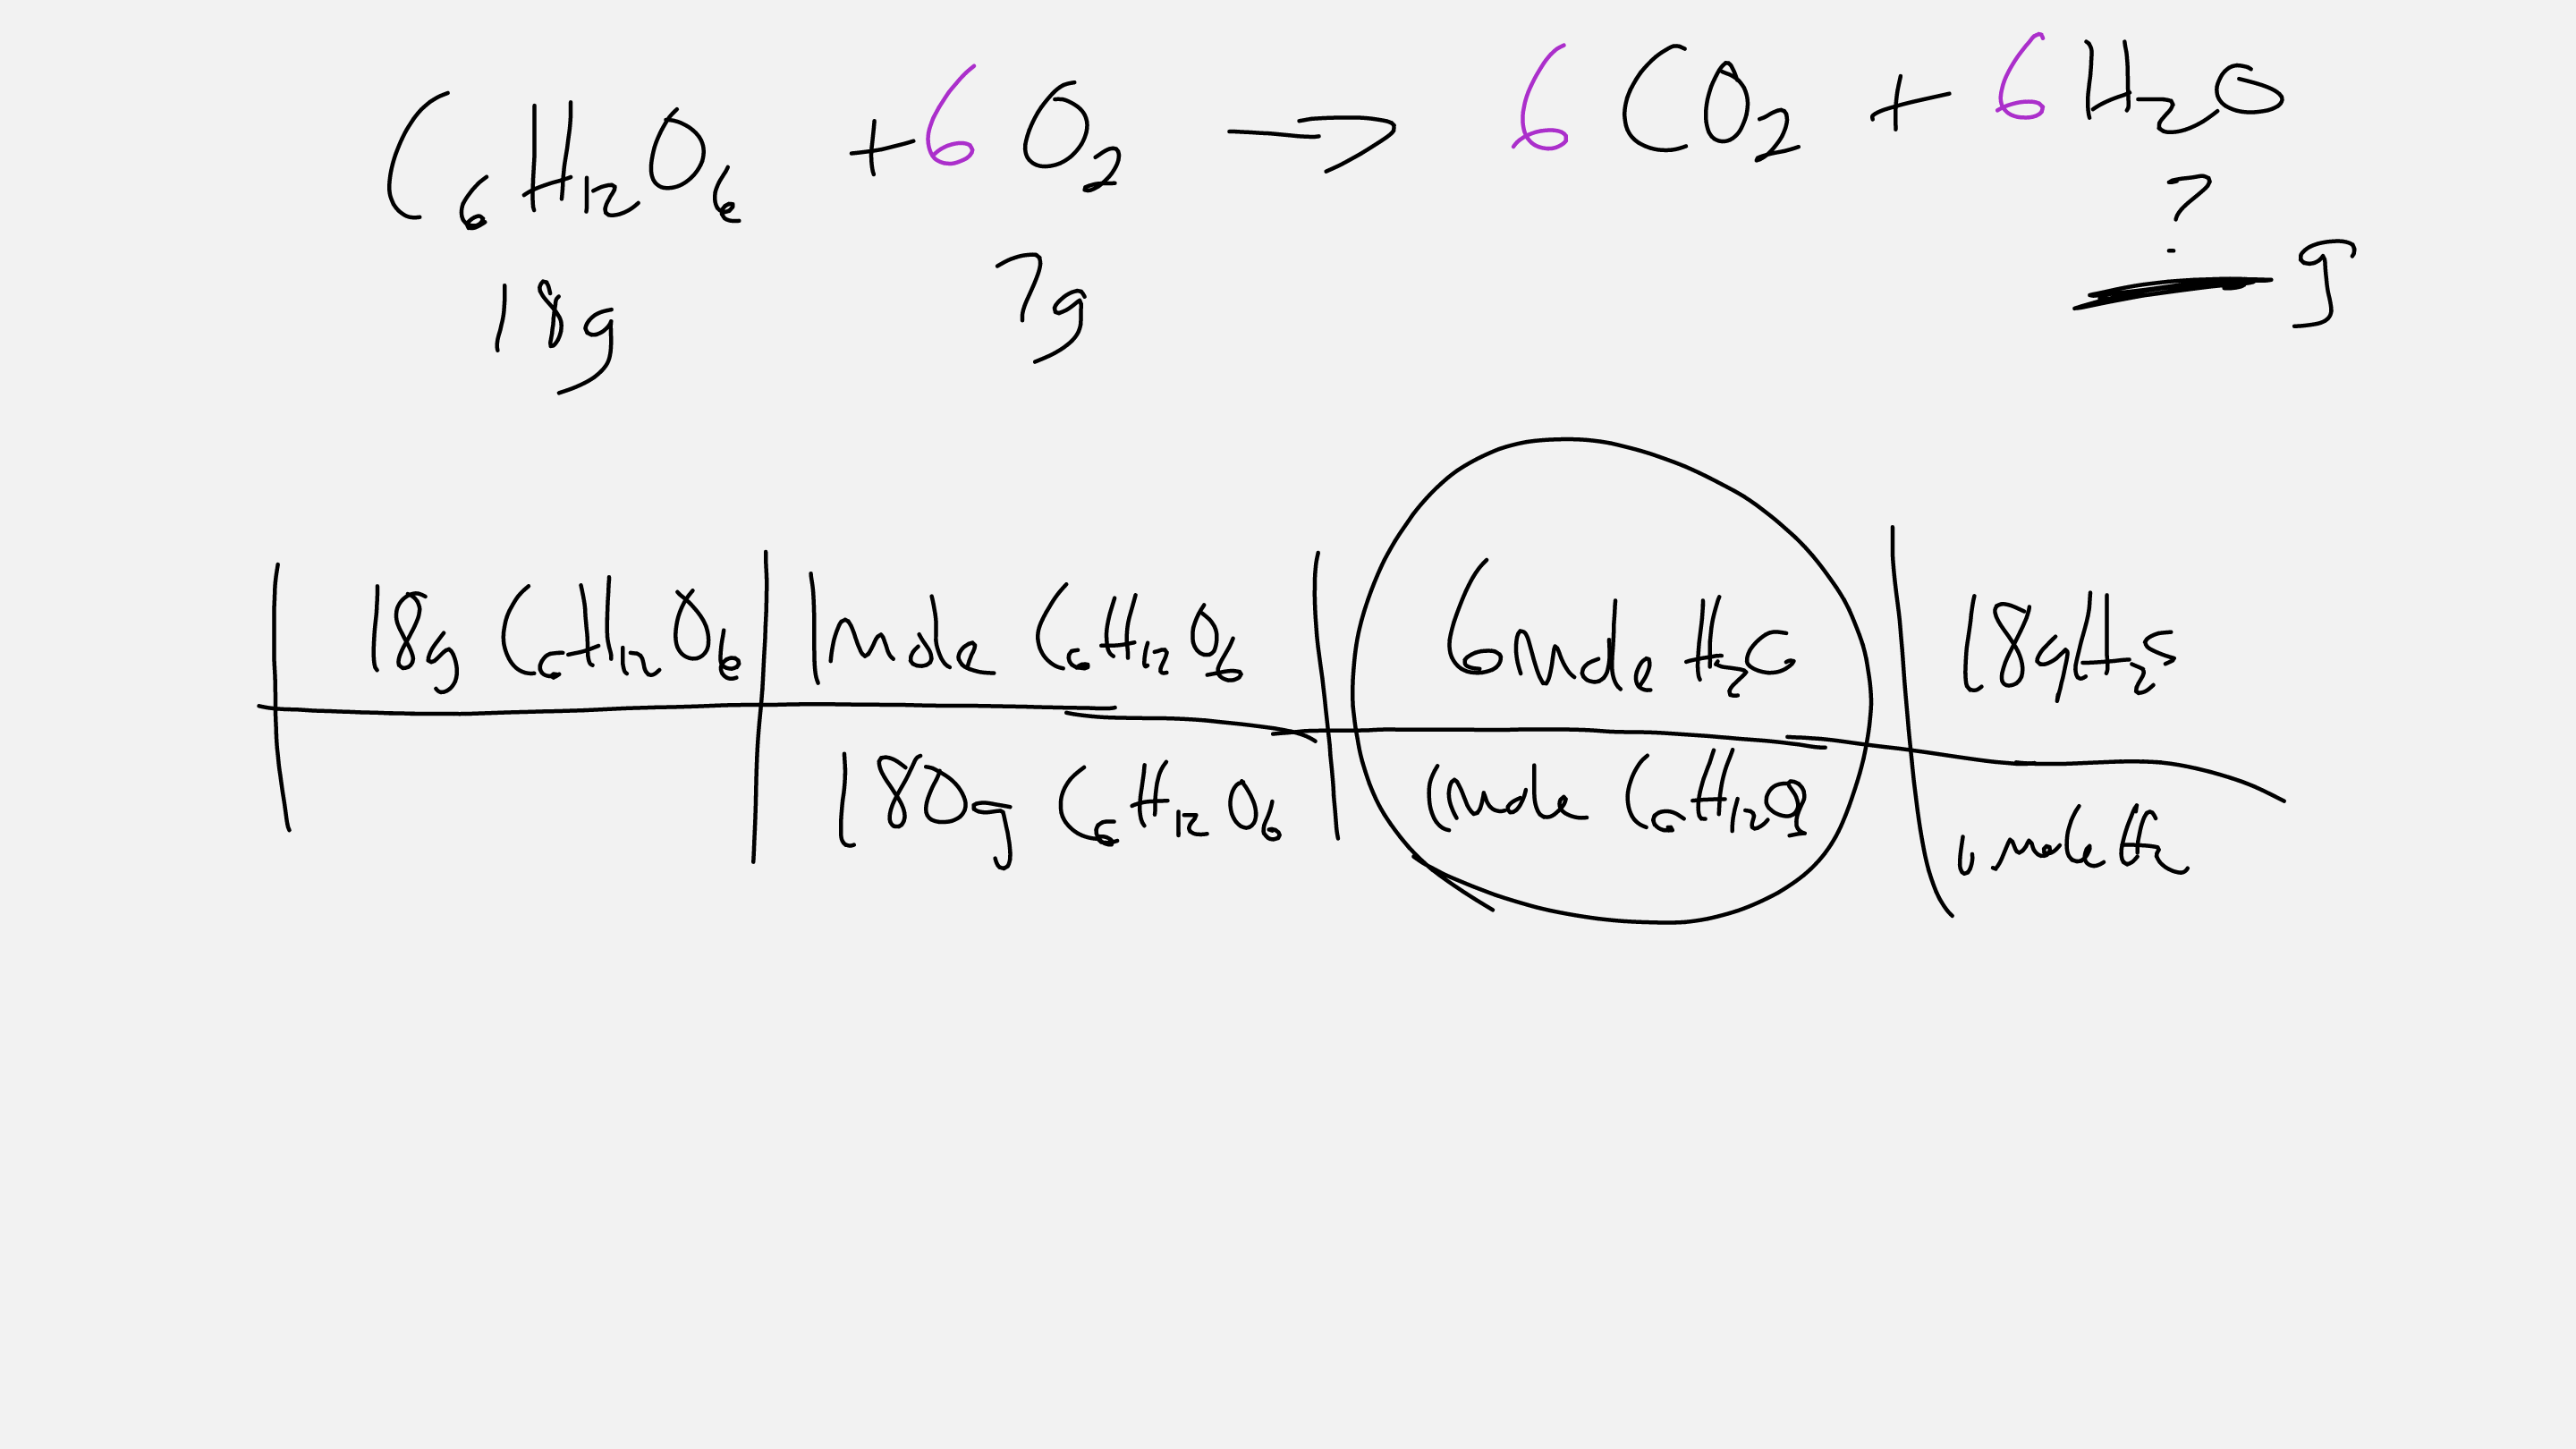 C₆H₁₂O₆ + 6 O₂ → 6 CO₂ + 6 H₂O
18g 7g ? g
18g C₆H₁₂O₆ | 1 mole C₆H₁₂O₆ | 6 mole H₂O | 18g H₂O
180g C₆H₁₂O₆ | 1 mole C₆H₁₂O₆ | 1 mole H₂